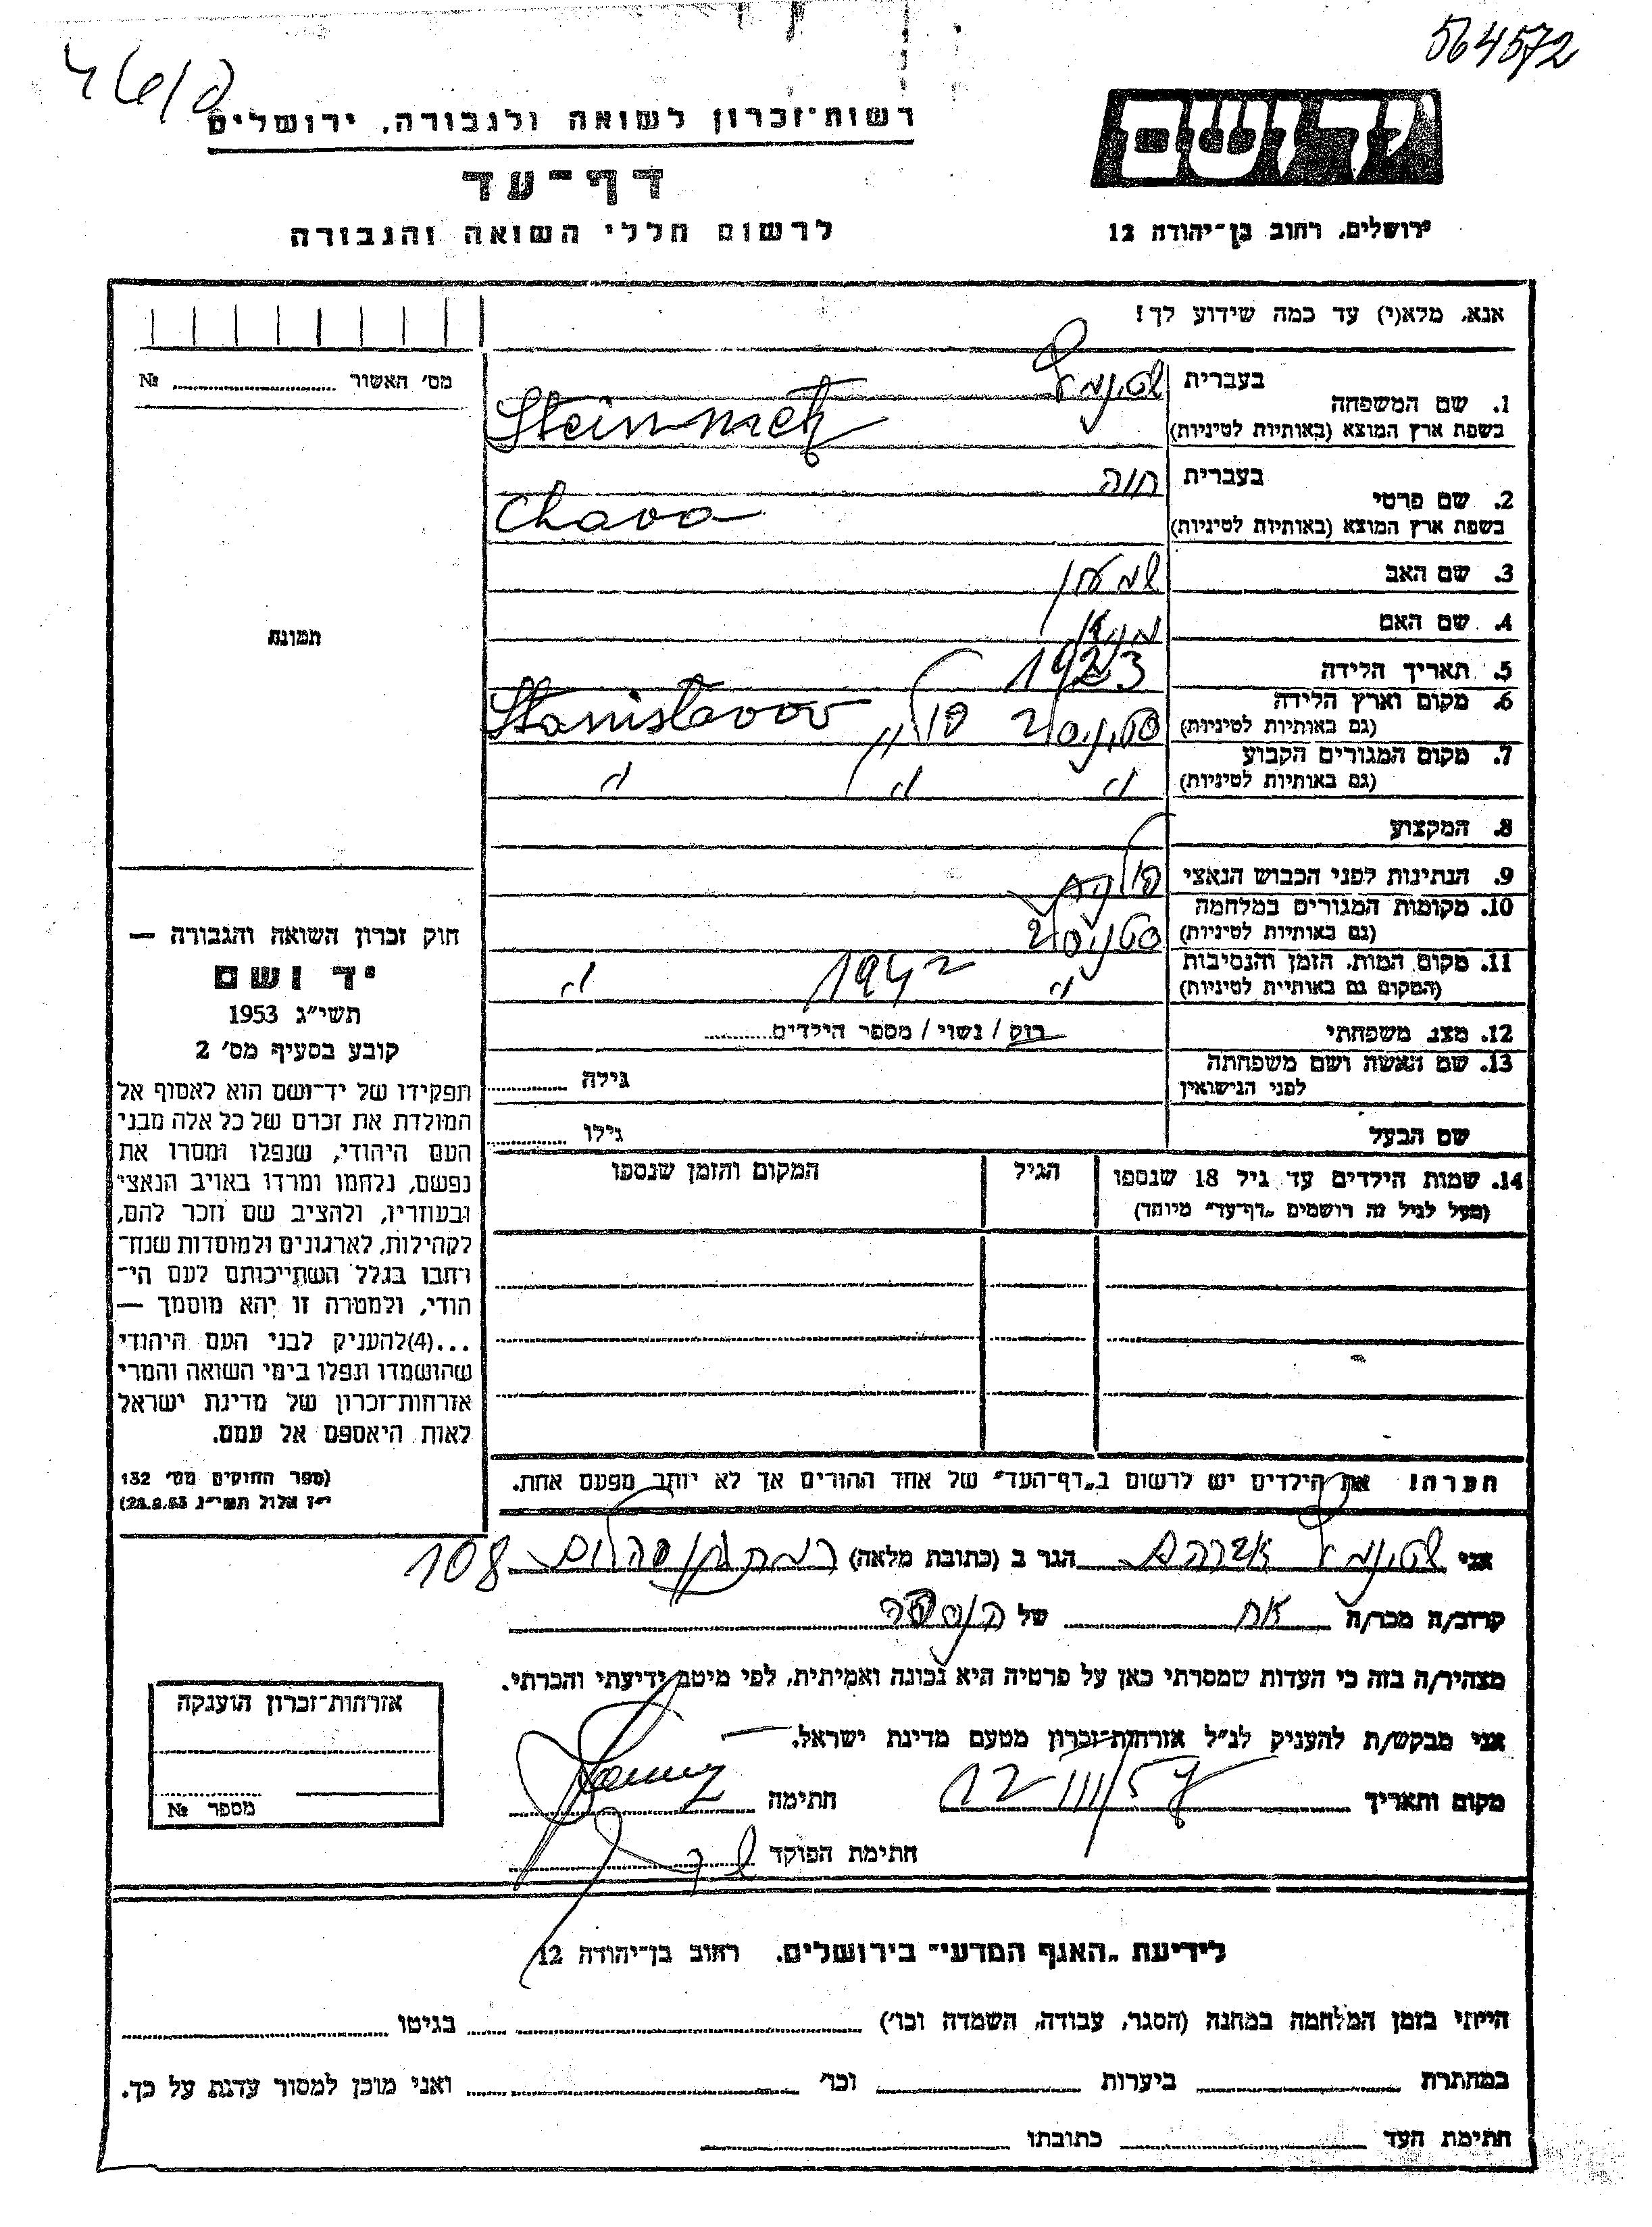 564572
רשות־זכרון לשואה ולגבורה, ירושלים
דף־עד
לרשום חללי השואה והגבורה
ירושלים, רחוב בן־יהודה 12
אנא, מלא(י) עד כמה שידוע לך!
מס׳ האשור №
1. שם המשפחה
בעברית שטינמץ
בשפת ארץ המוצא (באותיות לטיניות) Steinmetz
2. שם פרטי
בעברית חוה
בשפת ארץ המוצא (באותיות לטיניות) Chava
3. שם האב שמעון
4. שם האם
5. תאריך הלידה 1923
6. מקום וארץ הלידה
(גם באותיות לטיניות) סטניסלב פולין Stanislavov
7. מקום המגורים הקבוע
(גם באותיות לטיניות) " " "
8. המקצוע
9. הנתינות לפני הכבוש הנאצי פולנית
10. מקומות המגורים במלחמה
(גם באותיות לטיניות) סטניסלב
11. מקום המות, הזמן והנסיבות
(המקום גם באותיות לטיניות) " 1942 "
12. מצב משפחתי רוק / נשוי / מספר הילדים
13. שם האשה ושם משפחתה
לפני הנישואין גילה
שם הבעל גילו
14. שמות הילדים עד גיל 18 שנספו הגיל המקום והזמן שנספו
(מעל לגיל זה רושמים „דף־עד" מיוחד)
הערה! את הילדים יש לרשום ב„דף־העד" של אחד ההורים אך לא יותר מפעם אחת.
תמונה
חוק זכרון השואה והגבורה —
יד ושם
תשי״ג 1953
קובע בסעיף מס׳ 2
תפקידו של יד־ושם הוא לאסוף אל
המולדת את זכרם של כל אלה מבני
העם היהודי, שנפלו ומסרו את
נפשם, נלחמו ומרדו באויב הנאצי
ובעוזריו, ולהציב שם וזכר להם,
לקהילות, לארגונים ולמוסדות שנח־
רחבו בגלל השתייכותם לעם הי־
הודי, ולמטרה זו יהא מוסמך —
...(4)להעניק לבני העם היהודי
שהושמדו ונפלו בימי השואה והמרי
אזרחות־זכרון של מדינת ישראל
לאות היאספם אל עמם.
(ספר החוקים מס׳ 132
י״ז אלול תשי״ג 28.8.53)
אני שטינמץ אברהם הגר ב (כתובת מלאה) רמת גן 108
קרוב/ה מכר/ה אח של הנספה
מצהיר/ה בזה כי העדות שמסרתי כאן על פרטיה היא נכונה ואמיתית, לפי מיטב ידיעתי והכרתי.
אני מבקש/ת להעניק לנ״ל אזרחות־זכרון מטעם מדינת ישראל.
מקום ותאריך 12/III/57 חתימה
חתימת הפוקד
אזרחות־זכרון הוענקה
מספר №
לידיעת „האגף המדעי" בירושלים, רחוב בן־יהודה 12
הייתי בזמן המלחמה במחנה (הסגר, עבודה, השמדה וכו׳) בגיטו
במחתרת ביערות וכו׳ ואני מוכן למסור עדות על כך.
חתימת העד כתובתו